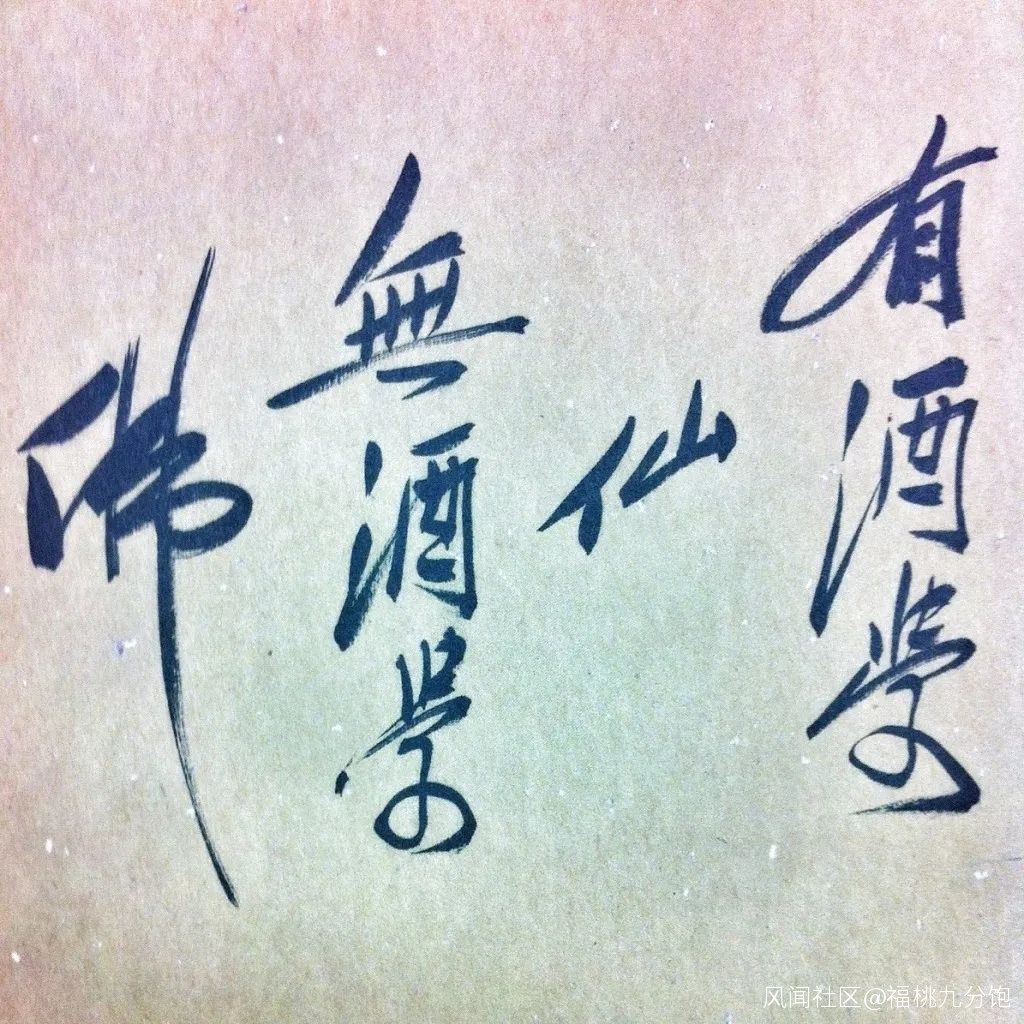 有酒学
仙
無酒学
佛
风闻社区@福桃九分饱